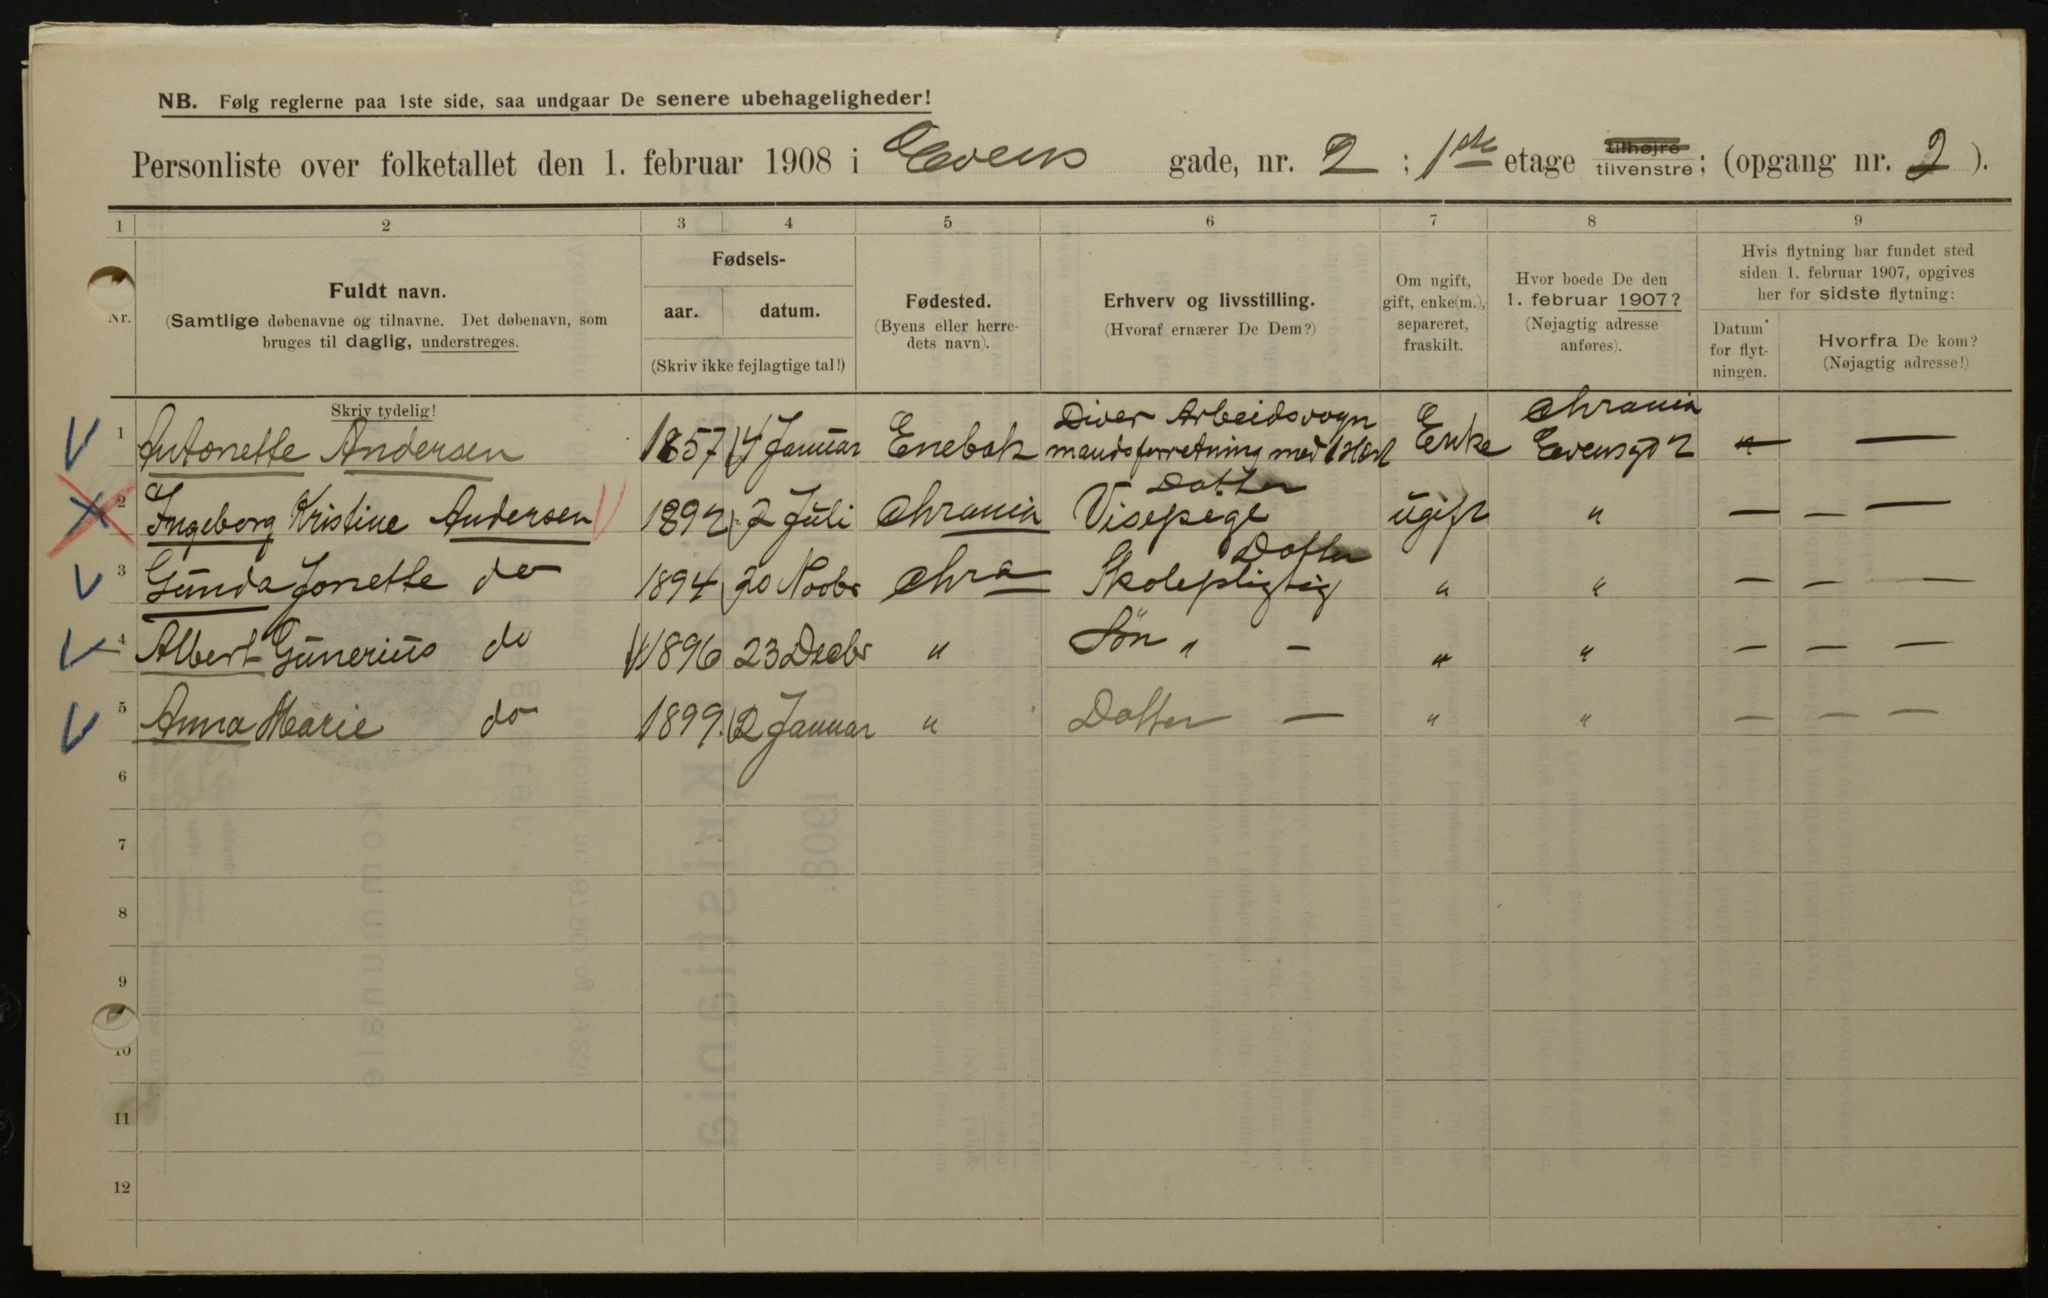 NB. Følg reglerne paa 1ste side, saa undgaar De senere ubehageligheder!
Personliste over folketallet den 1. februar 1908 i Evens gade, nr. 2 ; 1ste etage tilhøjre tilvenstre; (opgang nr. 2 ).
1 2 3 4 5 6 7 8 9
Nr.
Fuldt navn.
(Samtlige døbenavne og tilnavne. Det døbenavn, som
bruges til daglig, understreges.
Skriv tydelig!
Fødsels-
aar. datum.
(Skriv ikke fejlagtige tal!)
Fødested.
(Byens eller herre-
dets navn).
Erhverv og livsstilling.
(Hvoraf ernærer De Dem?)
Om ugift,
gift, enke(m.),
separeret,
fraskilt.
Hvor boede De den
1. februar 1907?
(Nøjagtig adresse
anføres).
Hvis flytning har fundet sted
siden 1. februar 1907, opgives
her for sidste flytning:
Datum
for flyt-
ningen.
Hvorfra De kom?
(Nøjagtig adresse!)
1 Antonette Andersen 1857 4 Januar Enebak Driver Arbeidsvogn
mandsforretning med 1 Hest Enke Chrania
Evensgd 2 " —
2 Ingeborg Kristine Andersen 1892 2 Juli Chrania Datter
Visepege ugift " — — —
3 Gunda Jonette do 1894 20 Novbr Chra Datter
Skolepligtig " " — — —
4 Albert Gunerius do 1896 23 Decbr " Søn " — " " — — —
5 Anna Marie do 1899. 2 Januar " Datter — " " — — —
6
7
8
9
10
11
12